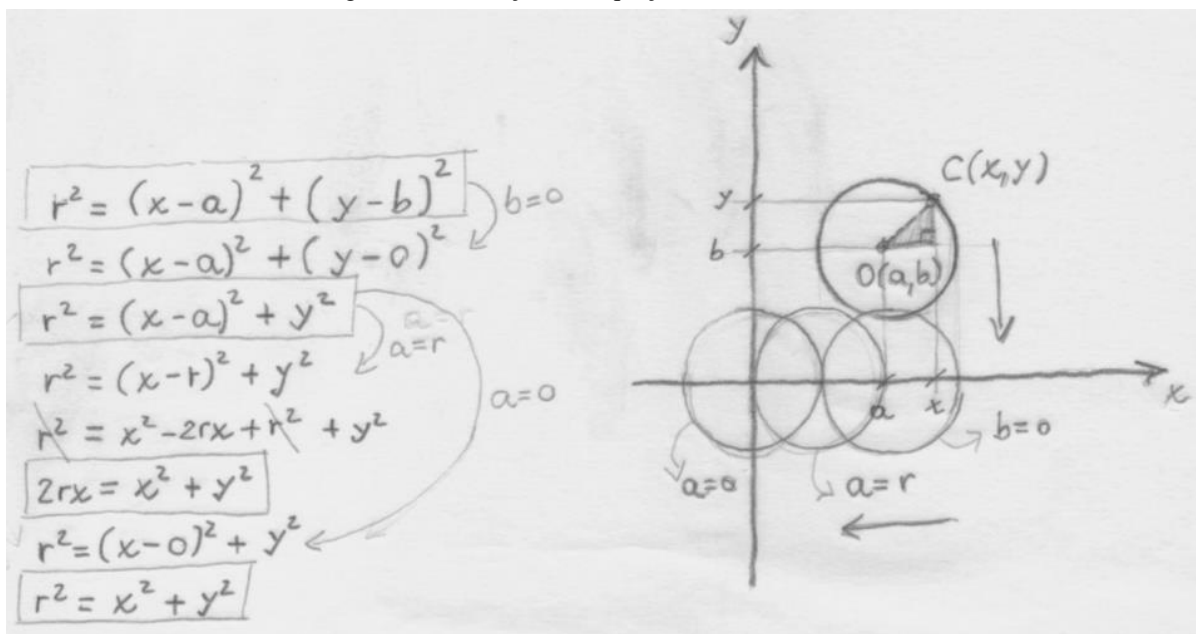 r² = (x-a)² + (y-b)²
b=0
r² = (x-a)² + (y-0)²
r² = (x-a)² + y²
a=r
r² = (x-r)² + y²
a=0
r² = x² - 2rx + r² + y²
2rx = x² + y²
r² = (x-0)² + y²
r² = x² + y²
y
C(x,y)
y
b
O(a,b)
a
x
x
b=0
a=0
a=r